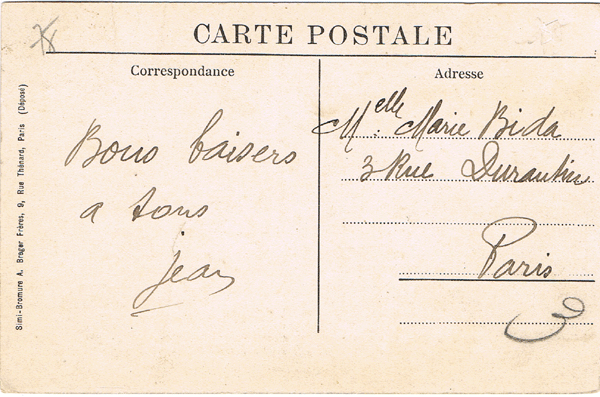 CARTE POSTALE
Correspondance
Bons baisers
a tous
Jean
Adresse
Melle. Marie Bida
3 Rue Durantin
Paris
Simi-Bromure A. Breger Frères, 9, Rue Thénard, Paris (Déposé)